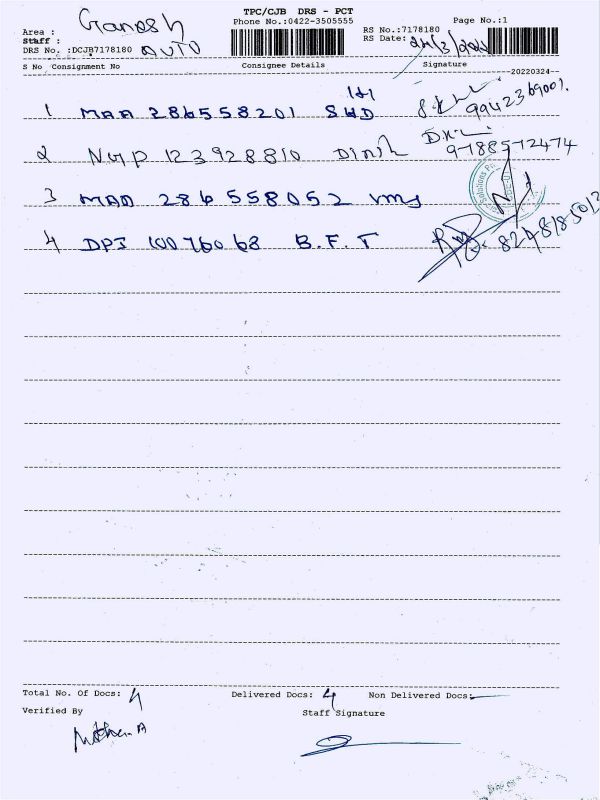 TPC/CJB DRS - PCT
Phone No.:0422-3505555
Page No.:1
Area : Ganesh
Staff : AUTO
DRS No. :DCJB7178180
RS No.:7178180
RS Date: 24/3/202
S No Consignment No Consignee Details Signature
20220324
1 MAA 286558201 SHD
2 NGP 123928810 Dinsh 9788572474
3 MAA 286558052 vms
4 DPJ 10076068 B.F.T
Total No. Of Docs: 4 Delivered Docs: 4 Non Delivered Docs:
Verified By Staff Signature